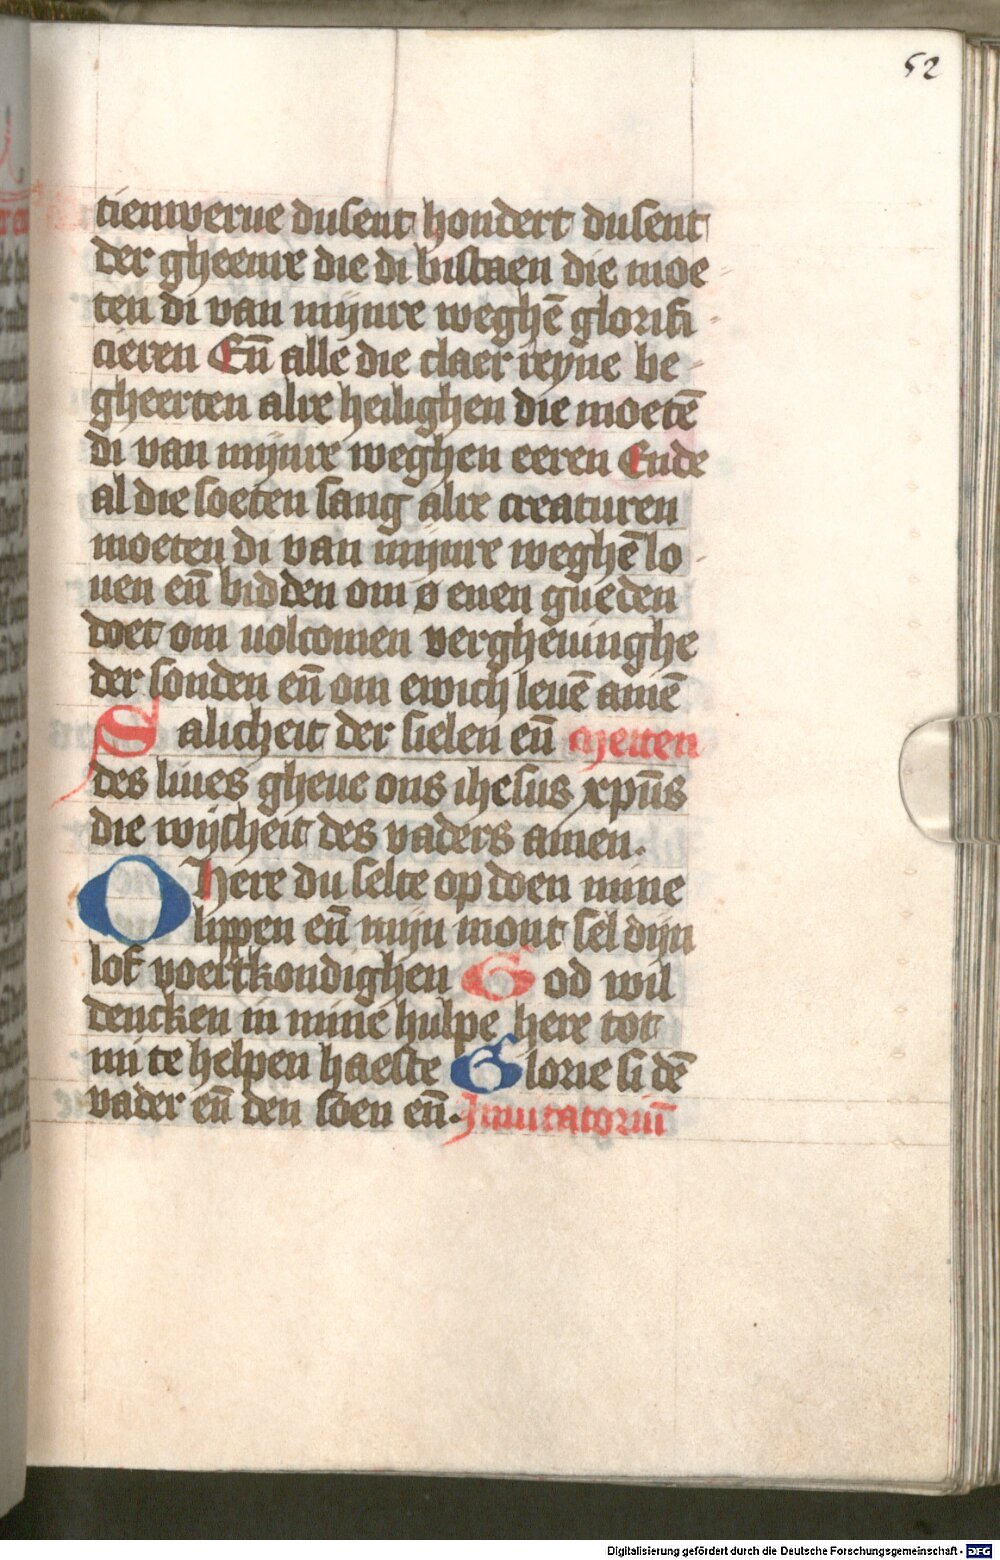 52
tienwerue dusent hondert dusent
der gheenre die di bistaen die moe
ten di van mijnre weghē glorifi
cieren Eñ alle die claer reyne be
gheerten alre heilighen die moetē
di van mijnre weghen eeren Ende
al die soeten sang alre creaturen
moeten di van mijnre weghē lo
uen eñ bidden om ø enen gueden
doet om uolcomen vergheuinghe
der sonden eñ om ewich leuē amē
Salicheit der sielen eñ
des liues gheue ons ihesus xpūs
die wijsheit des vaders amen.
O here du selte op doen mine
lippen eñ mijn mont sel dijn
lof voertkondighen God wil
dencken in mine hulpe here tot
mi te helpen haeste Glorie si dē
vader eñ den soen eñ. Inuitatoriū
Digitalisierung gefördert durch die Deutsche Forschungsgemeinschaft - DFG